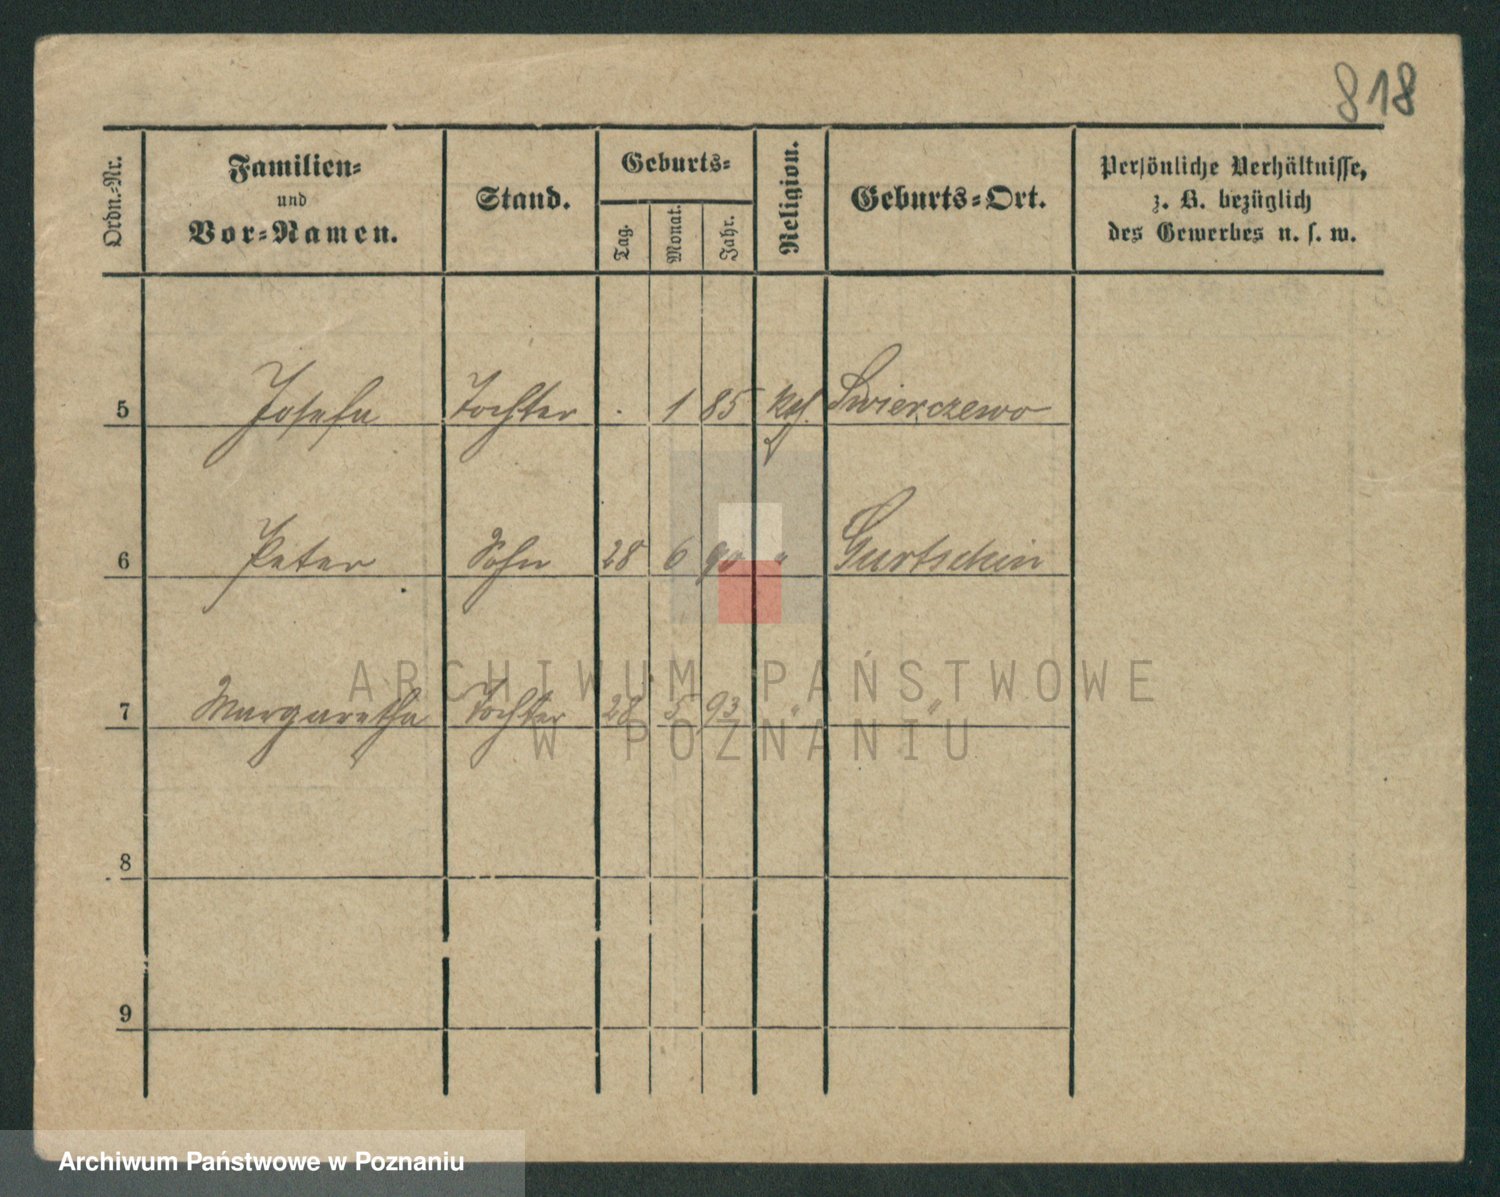 818
Ordn.-Nr.
Familien-
und
Vor-Namen.
Stand.
Geburts-
Tag.
Monat.
Jahr.
Religion.
Geburts-Ort.
Persönliche Verhältnisse,
z. B. bezüglich
des Gewerbes u. s. w.
5 Josefa Tochter . 1 85 kath. Swierczewo
6 Peter Sohn 28 6 90 " Gurtschin
7 Margaretha Tochter 28 5 93 " "
8
9
ARCHIWUM PAŃSTWOWE
W POZNANIU
Archiwum Państwowe w Poznaniu